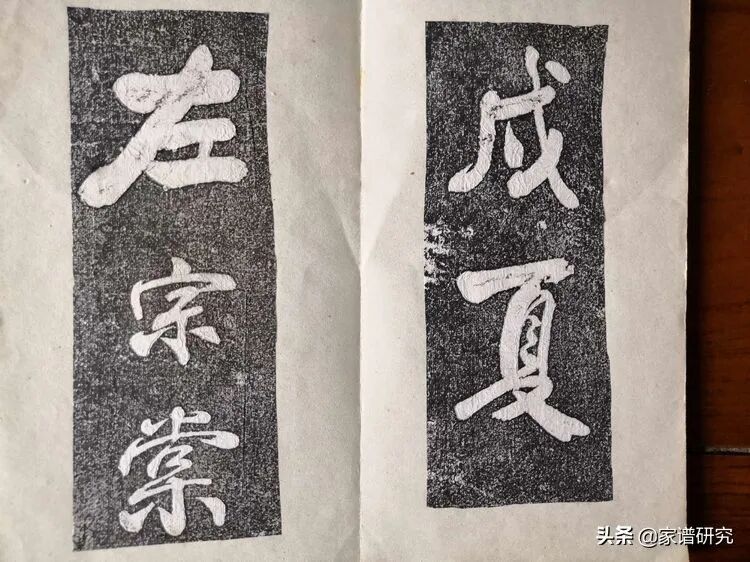 戌夏
左宗棠
头条 @家谱研究